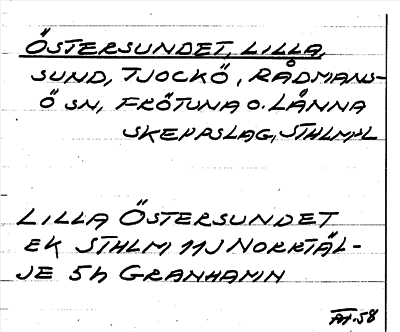 ÖSTERSUNDET, LILLA,
SUND, TJOCKÖ, RÅDMANS-
Ö SN, FRÖTUNA O. LÄNNA
SKEPPSLAG, STHLM:L
LILLA ÖSTERSUNDET
EK STHLM 11J NORRTÄL-
JE 5h GRANHAMN